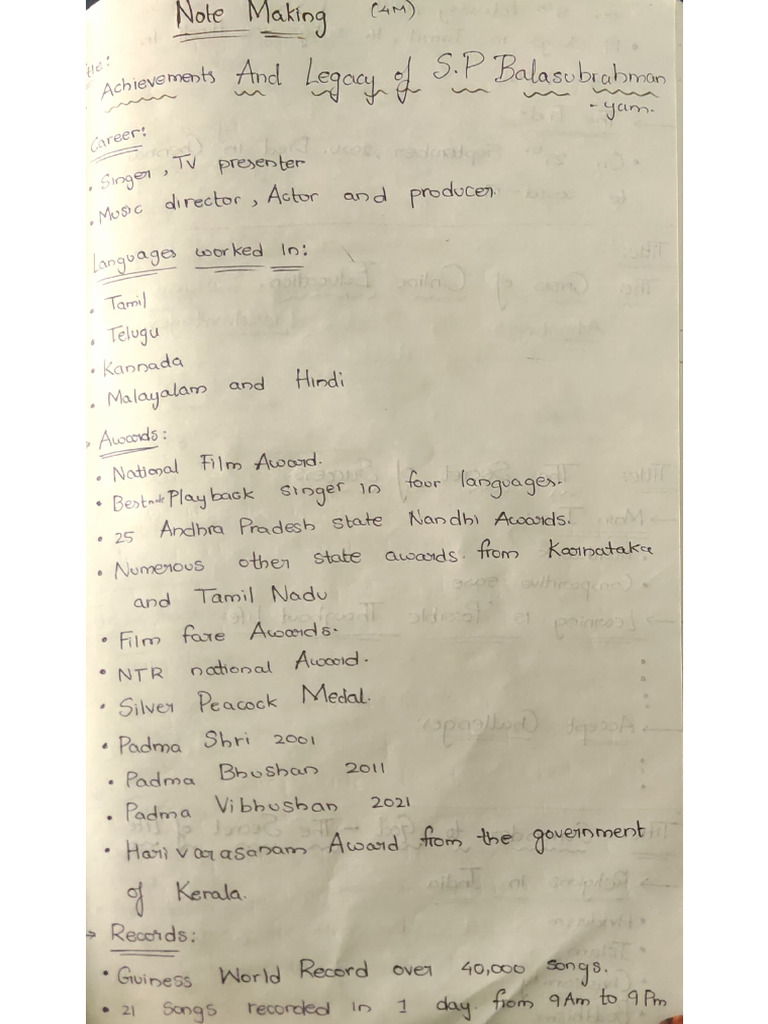 Note Making (4M)
Title:
Achievements And Legacy of S.P Balasubrahman
-yam.
Career:
• Singer, TV presenter
• Music director, Actor and producer.
Languages worked In:
• Tamil
• Telugu
• Kannada
• Malayalam and Hindi
→ Awards:
• National Film Award.
• Best Playback singer in four languages.
• 25 Andhra Pradesh state Nandhi Awards.
• Numerous other state awards from Karnataka
and Tamil Nadu
• Film fare Awards.
• NTR national Award.
• Silver Peacock Medal.
• Padma Shri 2001
• Padma Bhushan 2011
• Padma Vibhushan 2021
• Harivarasanam Award from the government
of Kerala.
→ Records:
• Guiness World Record over 40,000 songs.
• 21 Songs recorded in 1 day. from 9Am to 9Pm